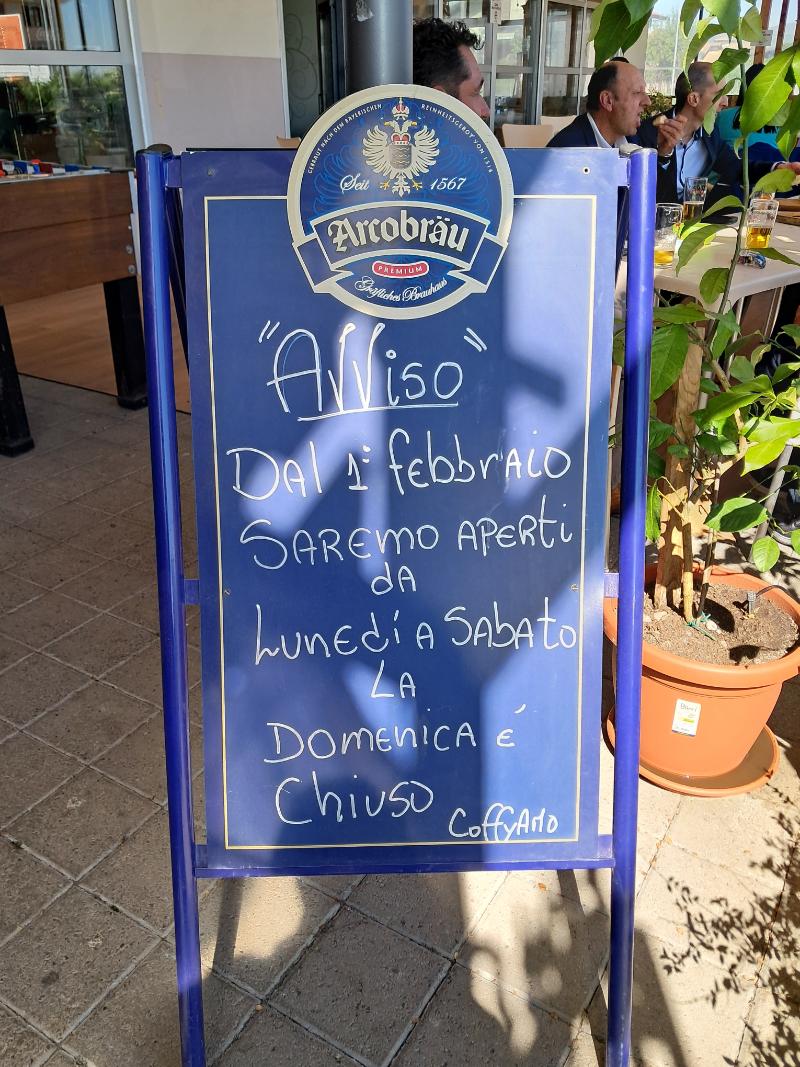 GEBRAUT NACH DEM BAYERISCHEN REINHEITSGEBOT VON 1516
Seit 1567
Arcobräu
PREMIUM
Gräfliches Brauhaus
"AVViso"
DAl 1° febbrAio
SAREMO APERti
dA
LuNEdí A SAbAto
LA
DOMENICA é
ChiuSO
CoffyAMO